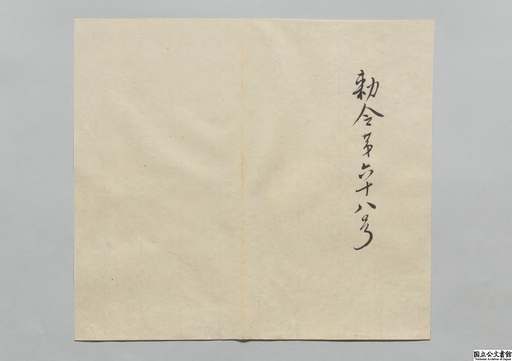 勅令第六十八号
国立公文書館
National Archives of Japan